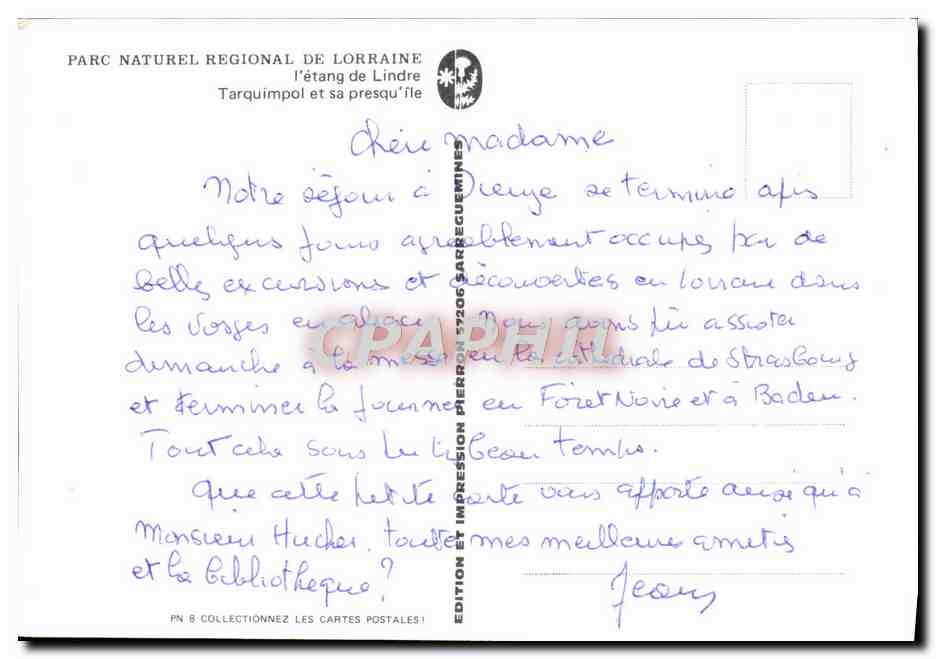 PARC NATUREL REGIONAL DE LORRAINE
l'étang de Lindre
Tarquimpol et sa presqu'île
Chère madame
Notre séjour à Dieuze se termine après
quelques jours agréablement occupés par de
belles excursions et découvertes en Lorraine dans
les Vosges en Alsace. Nous avons pu assister
dimanche à la messe en la cathédrale de Strasbourg
et terminer la journée en Foret Noire et à Baden.
Tout cela sous un beau temps.
Que cette petite carte vous apporte ainsi qu'à
Monsieur Hucher, toutes mes meilleures amitiés
et la bibliothèque?
Jean
EDITION ET IMPRESSION PIERRON 57206 SARREGUEMINES
CPAPHIL
PN 8 COLLECTIONNEZ LES CARTES POSTALES!